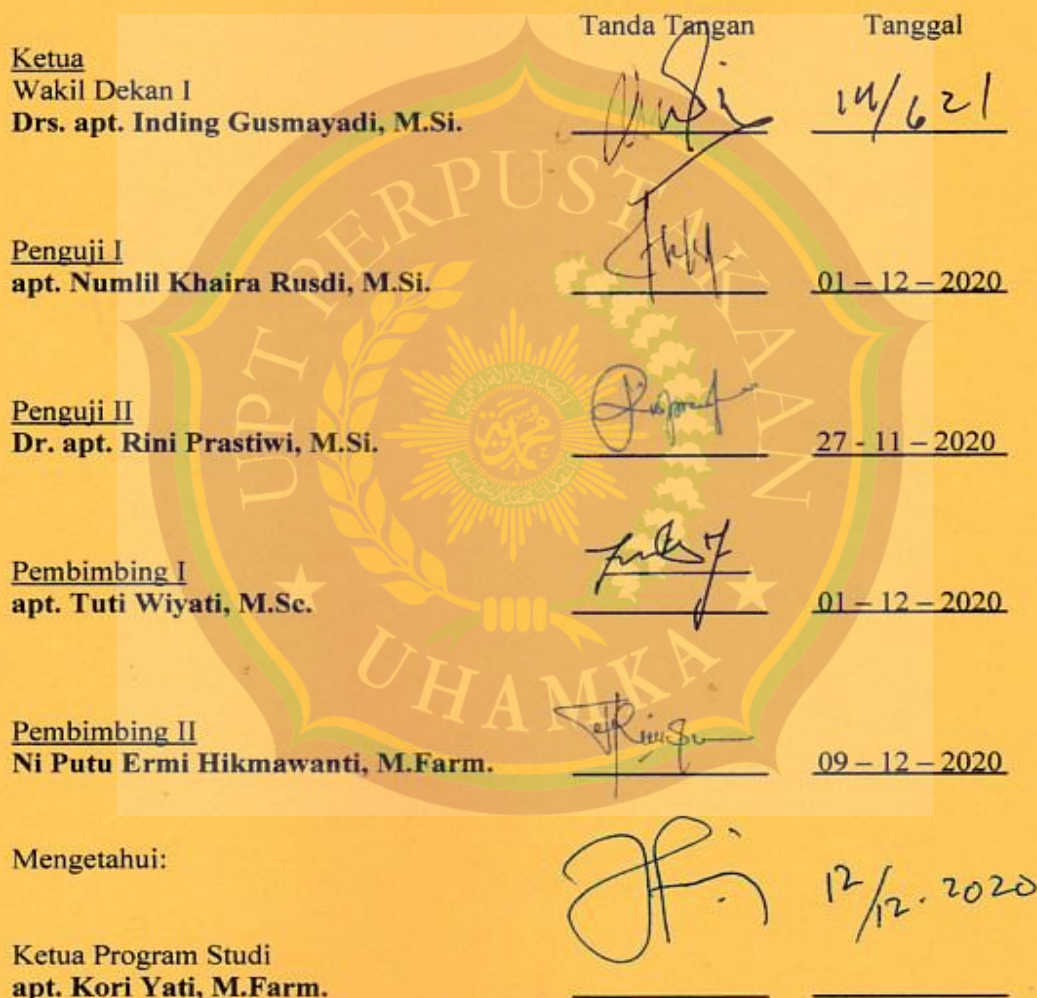 Tanda Tangan Tanggal
Ketua
Wakil Dekan I
Drs. apt. Inding Gusmayadi, M.Si. 14/6 21
Penguji I
apt. Numlil Khaira Rusdi, M.Si. 01 – 12 – 2020
Penguji II
Dr. apt. Rini Prastiwi, M.Si. 27 - 11 – 2020
Pembimbing I
apt. Tuti Wiyati, M.Sc. 01 – 12 – 2020
Pembimbing II
Ni Putu Ermi Hikmawanti, M.Farm. 09 – 12 – 2020
Mengetahui:
12/12. 2020
Ketua Program Studi
apt. Kori Yati, M.Farm.
UPT PERPUSTAKAAN
UHAMKA